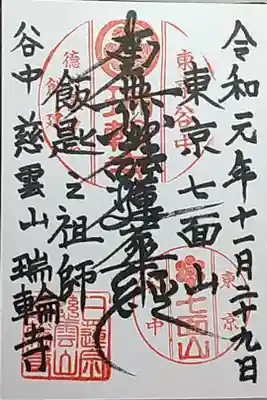 令和元年十一月二十九日
東京七面山
南無妙法蓮華経
飯匙之祖師
谷中 慈雲山瑞輪寺
東京谷中
東京
七面山
中
日蓮宗
慈雲山